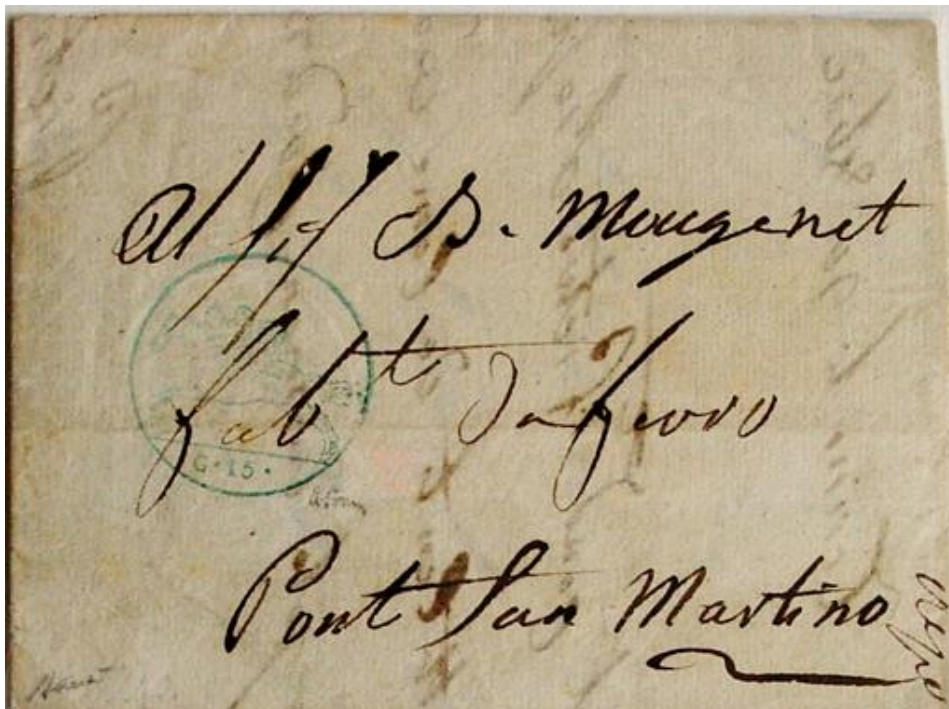 Al Sig B. Mougenet
fab.t da ferro
C. 15.
Pont San Martino